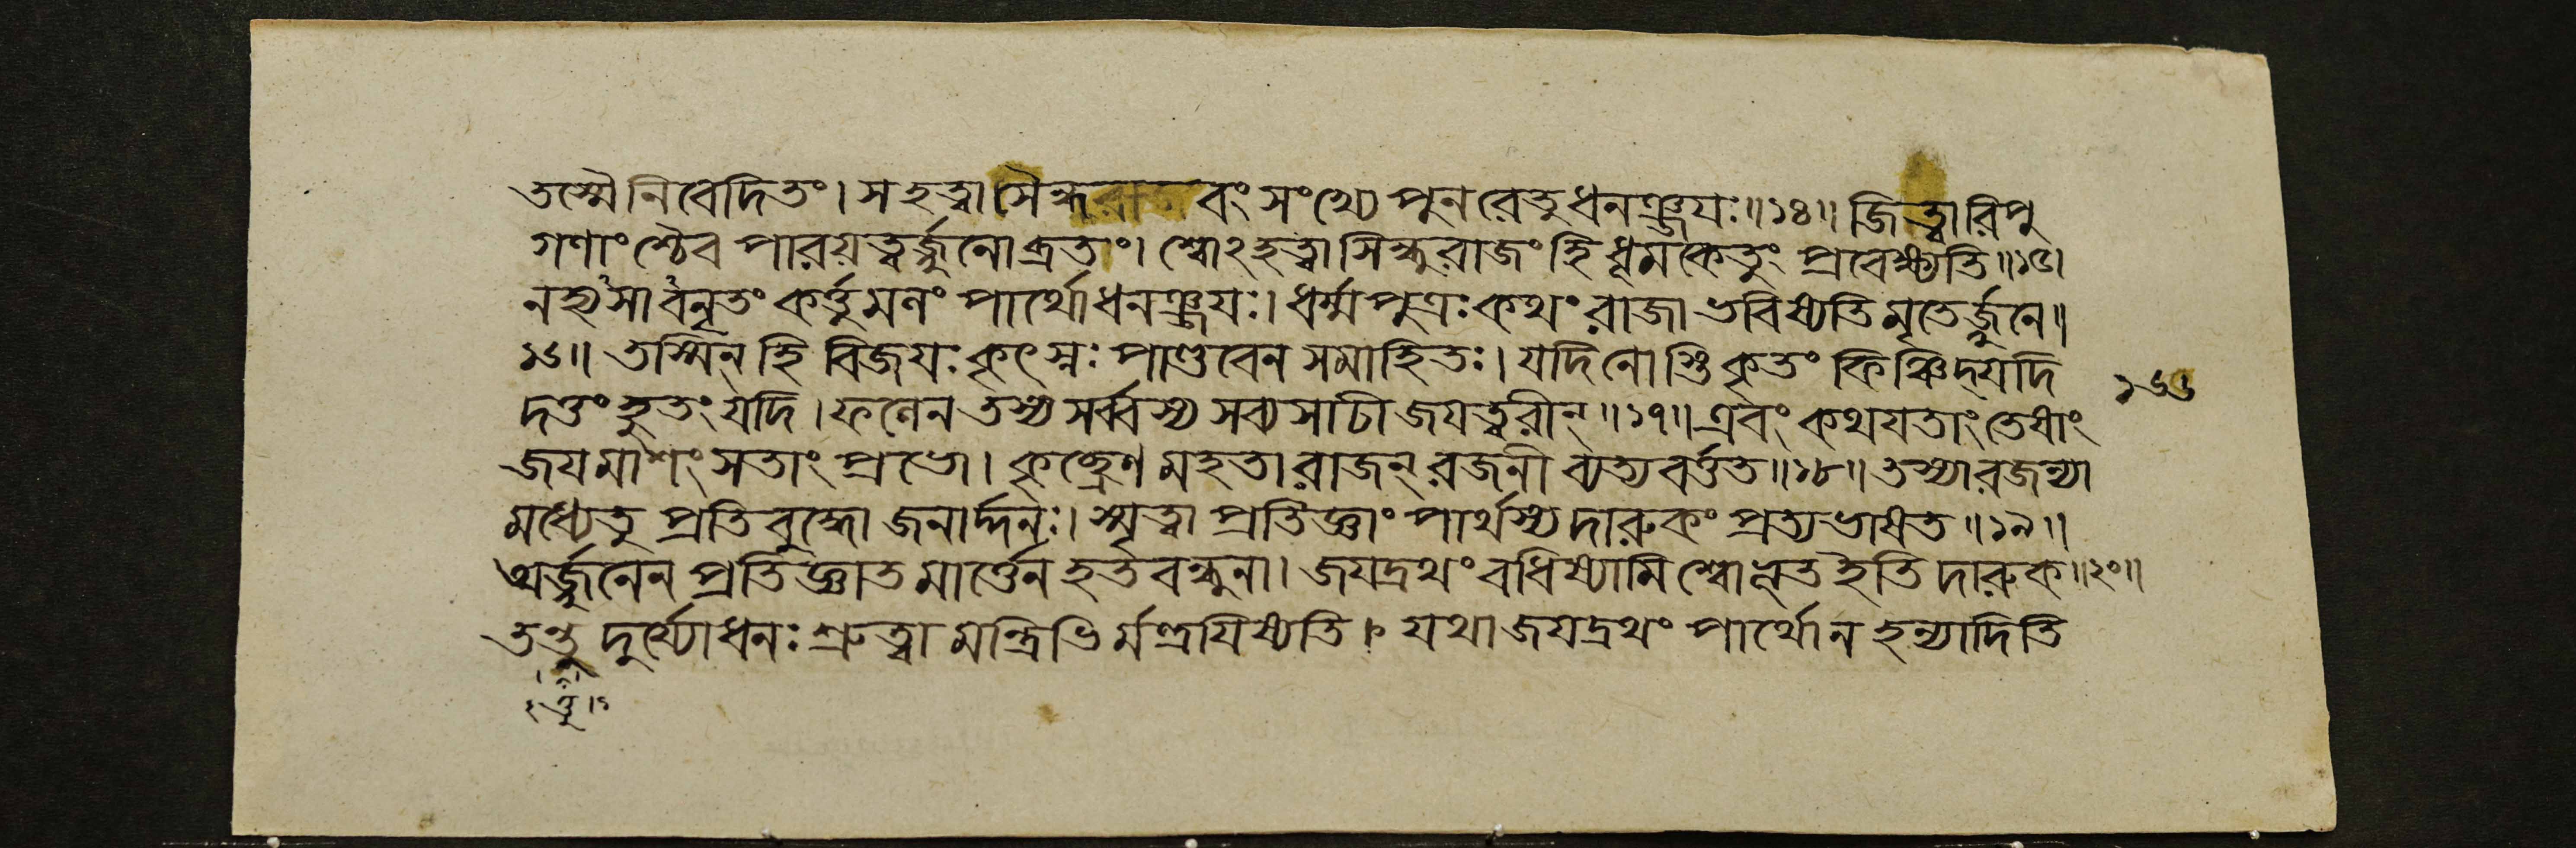 তস্মৈ নিবেদিতং। স হত্বা সৈন্ধবং সংখ্যে পুনরেতু ধনঞ্জয়ঃ॥১৪॥ জিত্বা রিপু
গণাংশ্চৈব পারয়ত্বর্জ্জুনো ব্রতং। শ্বোঽহত্বা সিন্ধুরাজং হি ধূমকেতুং প্রবেক্ষ্যতি॥১৫।
নহ্যসাবনৃতং কর্ত্তুমলং পার্থো ধনঞ্জয়ঃ। ধর্ম্মপুত্রঃ কথং রাজা ভবিষ্যতি মৃতেঽর্জ্জুনে॥
১৬॥ তস্মিন্ হি বিজয়ঃ কৃৎস্নঃ পাণ্ডবেন সমাহিতঃ। যদি নোস্তি কৃতং কিঞ্চিদ্যদি
দত্তং হুতং যদি। ফলেন তস্য সর্ব্বস্য সব্যসাচী জয়ত্বরীন্॥১৭॥ এবং কথয়তাং তেষাং
জয়মাশংসতাং প্রভো। কৃচ্ছ্রেণ মহতা রাজন্ রজনী ব্যত্যবর্ত্তত॥১৮॥ তস্যা রজন্যা
মধ্যে তু প্রতিবুদ্ধো জনার্দ্দনঃ। স্মৃত্বা প্রতিজ্ঞাং পার্থস্য দারুকং প্রত্যভাষত॥১৯॥
অর্জ্জুনেন প্রতিজ্ঞাতমার্ত্তেন হতবন্ধুনা। জয়দ্রথং বধিষ্যামি শ্বোভূত ইতি দারুক॥২০॥
তত্তু দুর্য্যোধনঃ শ্রুত্বা মন্ত্রিভির্মন্ত্রয়িষ্যতি। যথা জয়দ্রথং পার্থো ন হন্যাদিতি
১৬৬